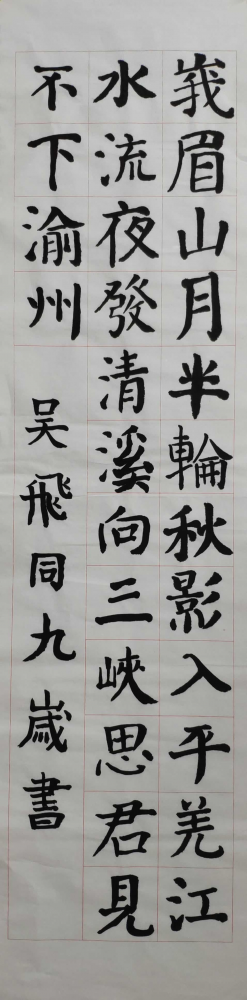 峩眉山月半輪秋影入平羌江
水流夜發清溪向三峽思君見
不下渝州 吴飛同九歲書